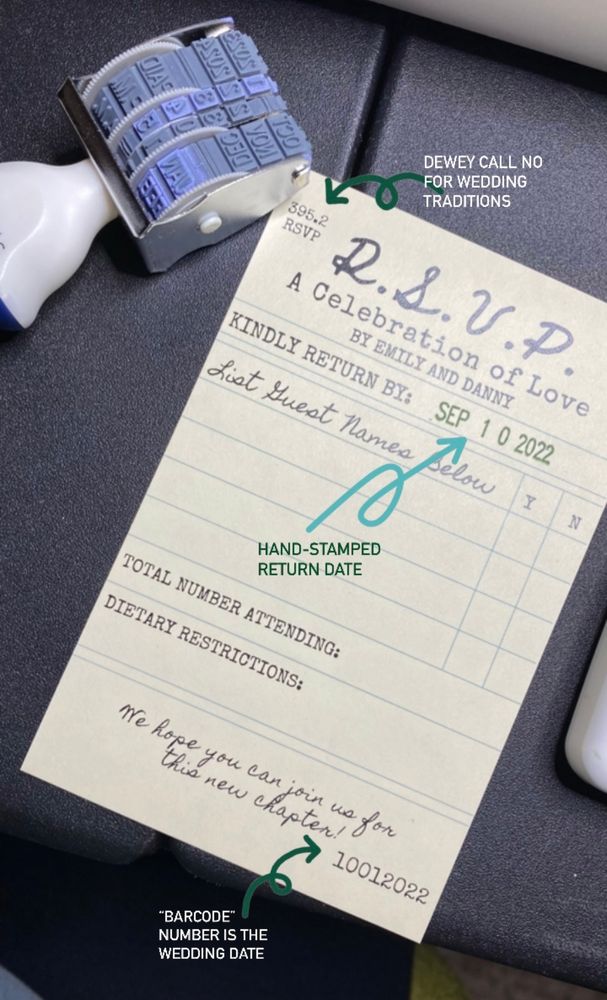 DEWEY CALL NO
FOR WEDDING
TRADITIONS
395.2
RSVP
R.S.V.P.
A Celebration of Love
BY EMILY AND DANNY
KINDLY RETURN BY:
SEP 10 2022
List Guest Names Below
Y N
HAND-STAMPED
RETURN DATE
TOTAL NUMBER ATTENDING:
DIETARY RESTRICTIONS:
We hope you can join us for
this new chapter!
10012022
"BARCODE"
NUMBER IS THE
WEDDING DATE